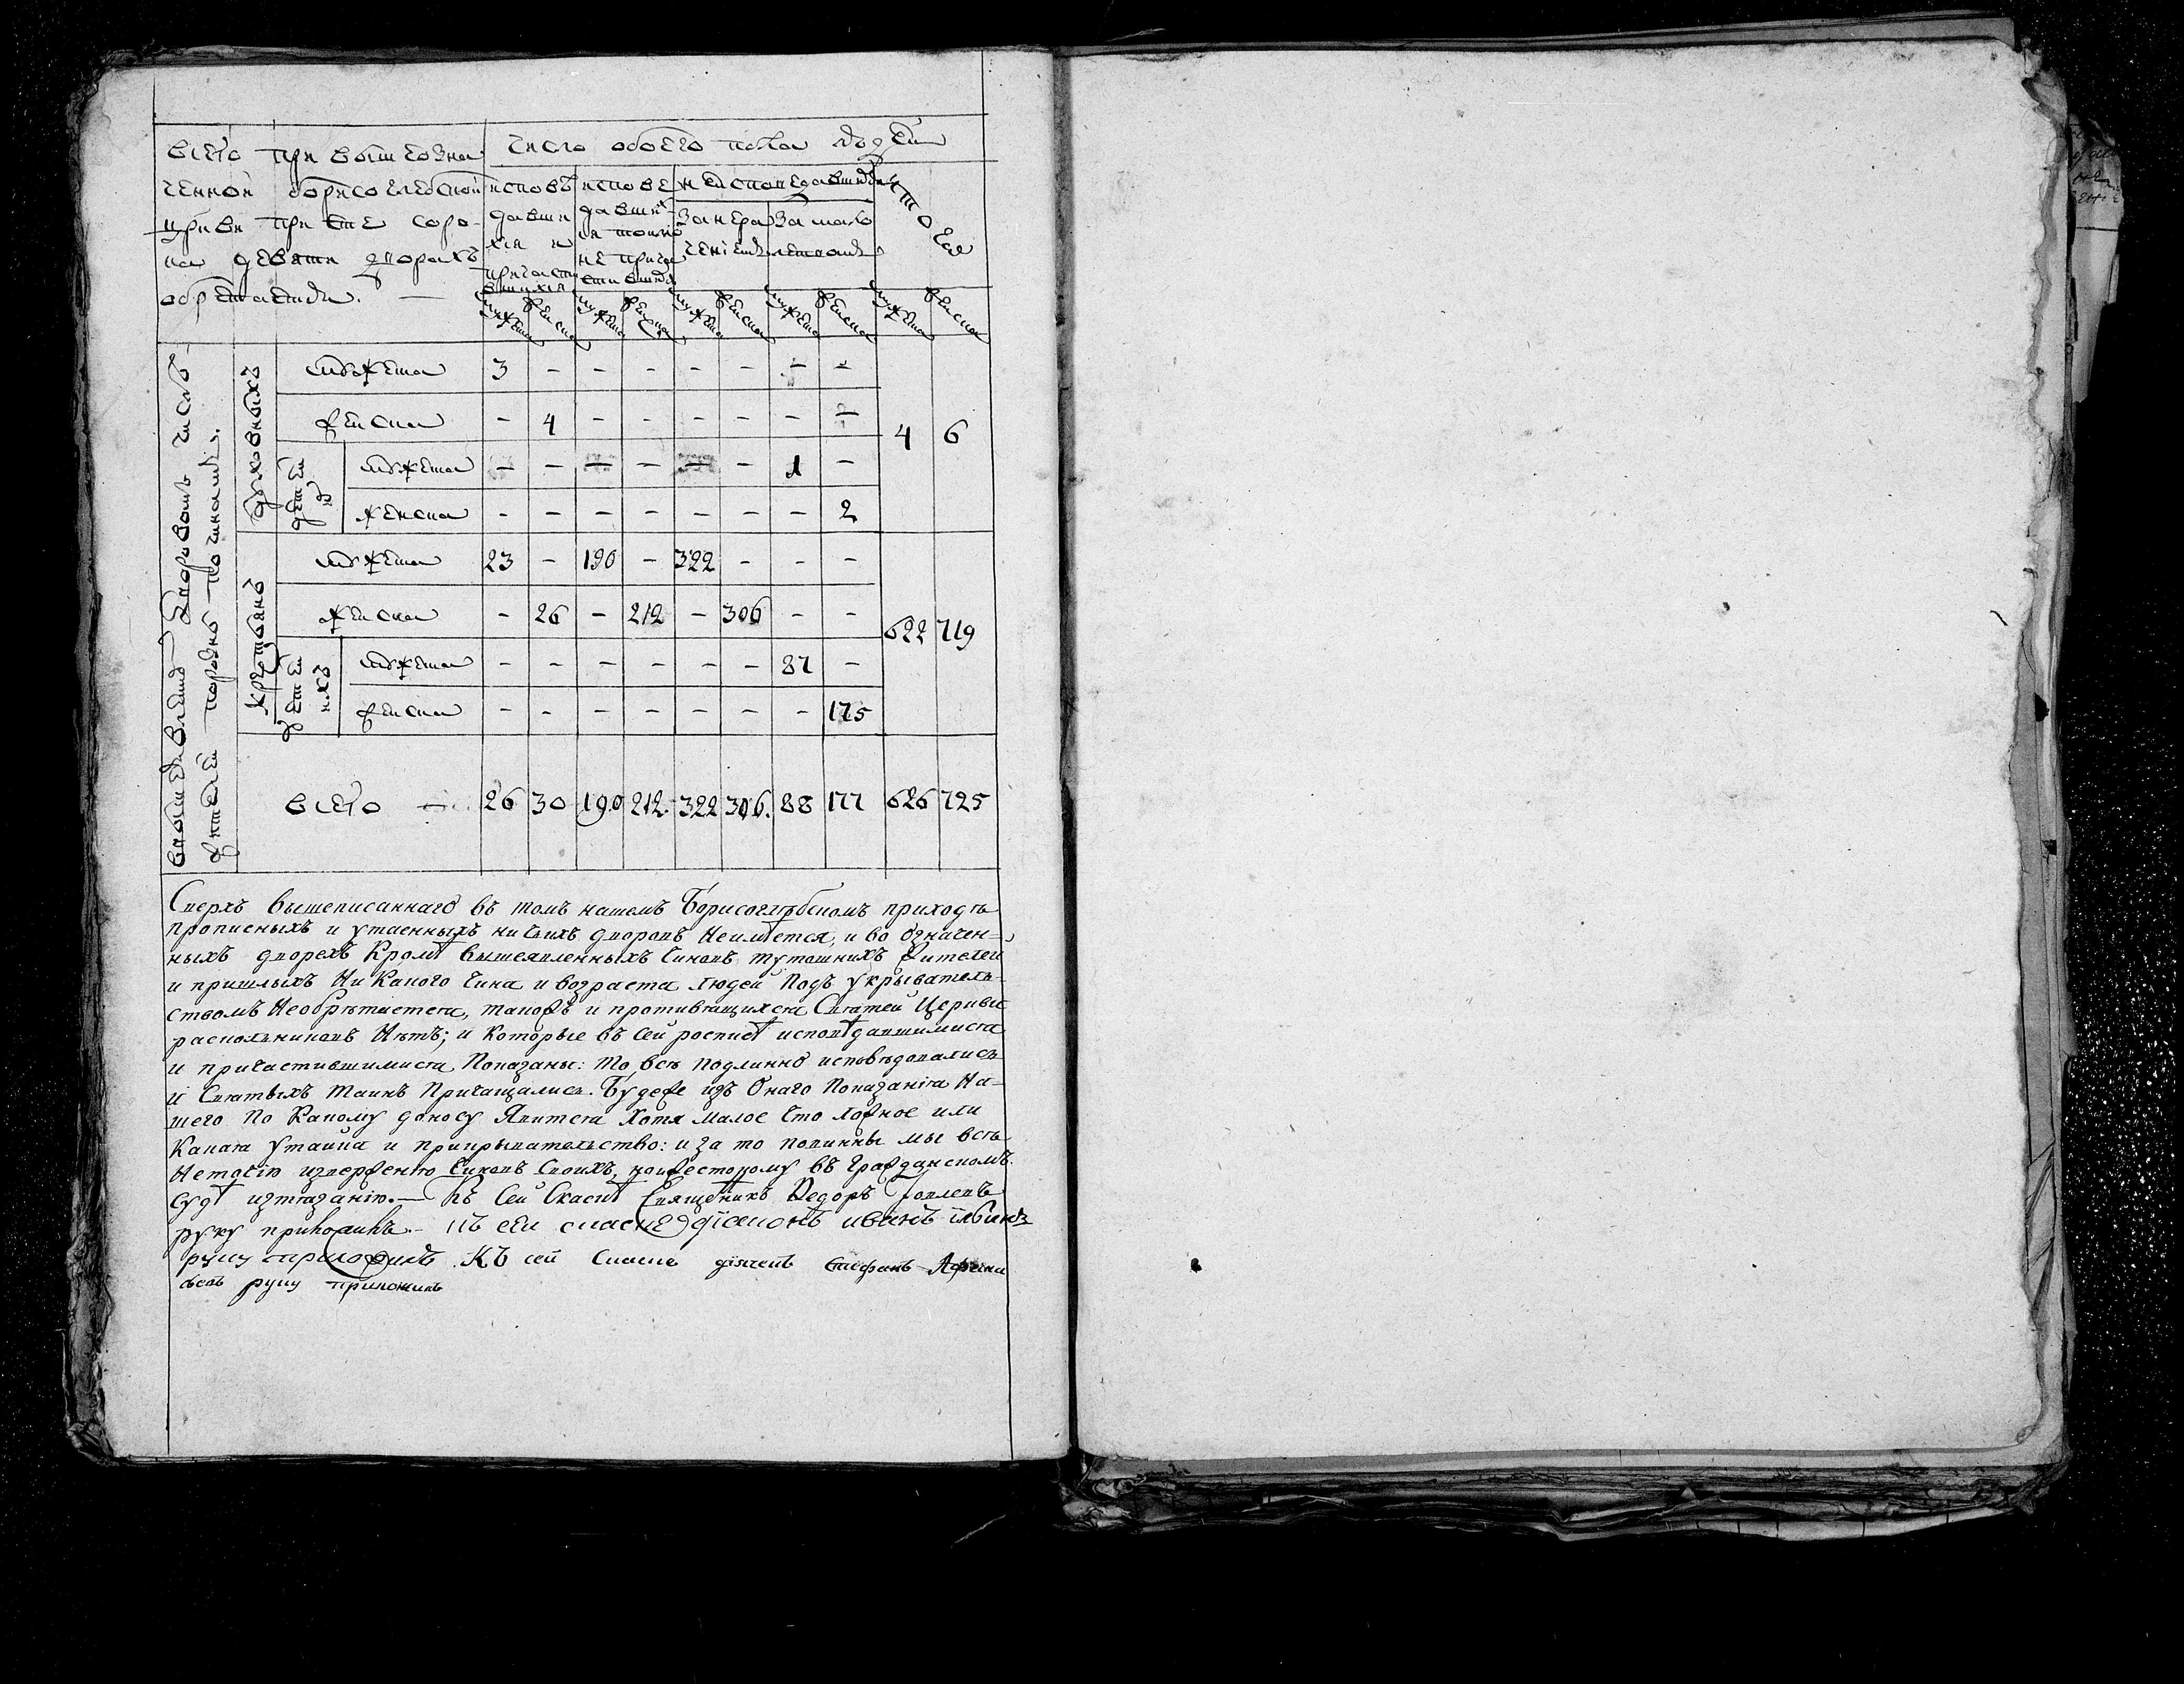 всего при вышеозна
ченной борисоглебской
цркви при сте соро-
ка девяти дворахъ
обретаетца. —
число обоего пола людей
исповѣ
давши
хся и
причасти
вшихся
испове
давших
ся токмо
не прича
стившихся
не исповедавшихся
за нера
чениемъ
за мало
летствомъ
итого всего
мужеска
женска
мужеска
женска
мужеска
женска
мужеска
женска
мужеска
женска
духовныхъ
мужеска 3 - - - - - - -
женска - 4 - - - - - -
детей
мужеска - - - - - - 1 -
женска - - - - - - - 2
4 6
крестьянъ
мужеска 23 - 190 - 322 - - -
женска - 26 - 212 - 306 - -
детей ихъ
мужеска - - - - - - 87 -
женска - - - - - - - 175
622 719
всего — 26 30 190 212 322 306. 88 177 626 725
Сверхъ вышеписаннаго въ томъ нашемъ Борисоглѣбскомъ приходѣ
прописныхъ и утаенныхъ ни чьихъ дворовъ Неимѣется, и во Означен-
ныхъ дворехъ Кромѣ вышеявленныхъ Чиновъ тутошнихъ Жителей
и пришлыхъ Ни Какого Чина и возраста людей Подъ укрыватель-
ствомъ Необрѣтается, такожъ и противящихся Святей Церкви
раскольниковъ Нѣтъ; и Которые въ сей росписѣ исповѣдавшимися
и причастившимися Показаны: То всѣ подлинно исповѣдовались
и Святыхъ Таинъ Причащались. Будеже изъ Онаго Показанія На-
шего По Какому доносу Явится Хотя Малое Что ложное или
Какая Утайка и прикрывательство: и за то повинны мы всѣ
Нетокмо изверженію Чиновъ Своихъ, но и жестокому въ Гражданскомъ
Судѣ изтязанію. — Къ Сей Сказкѣ Священникъ Федоръ
руку приложилъ. — къ сеи скаске діаконъ иванъ
руку приложилъ. Къ сей Скаске дьячекъ Стефанъ
руку приложилъ